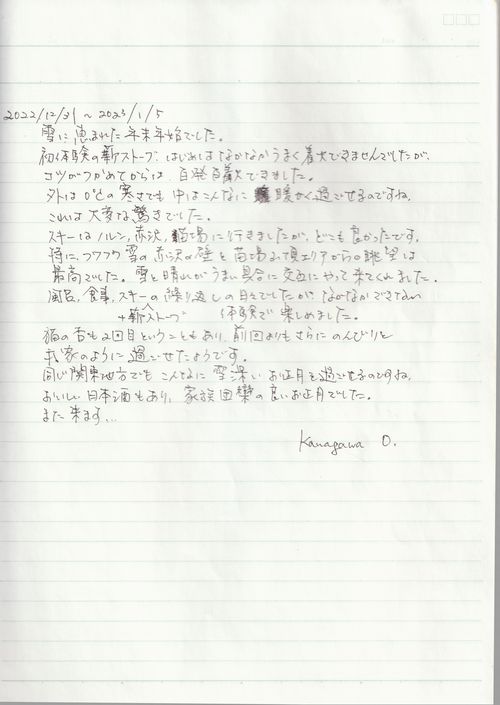 2022/12/31 ~ 2023/1/5
雪に恵まれた年末年始でした。
初体験の薪ストーブ: はじめはなかなかうまく着火できませんでしたが、
コツがつかめてからは、百発百着火できました。
外は0°との寒さでも中はこんなに暖かく過ごせるのですね。
これは大変な驚きでした。
スキーはノルン, 赤沢, 苗場に行きましたが、どこも良かったです。
特に、フワフワ雪の赤沢の壁と苗場山頂エリアからの眺望は
最高でした。雪と晴れがうまい具合に交互にやって来てくれました。
風呂, 食事, スキーの繰り返しの日々でしたが、なかなかできない
+薪ストーブ 体験で楽しめました。
猫の杏も2回目ということもあり、前回よりもさらにのんびりと
我家のように過ごせたようです。
同じ関東地方でもこんなに雪深いお正月を過ごせるのですね。
おいしい日本酒もあり、家族団欒の良いお正月でした。
また来ます...
Kanagawa O.